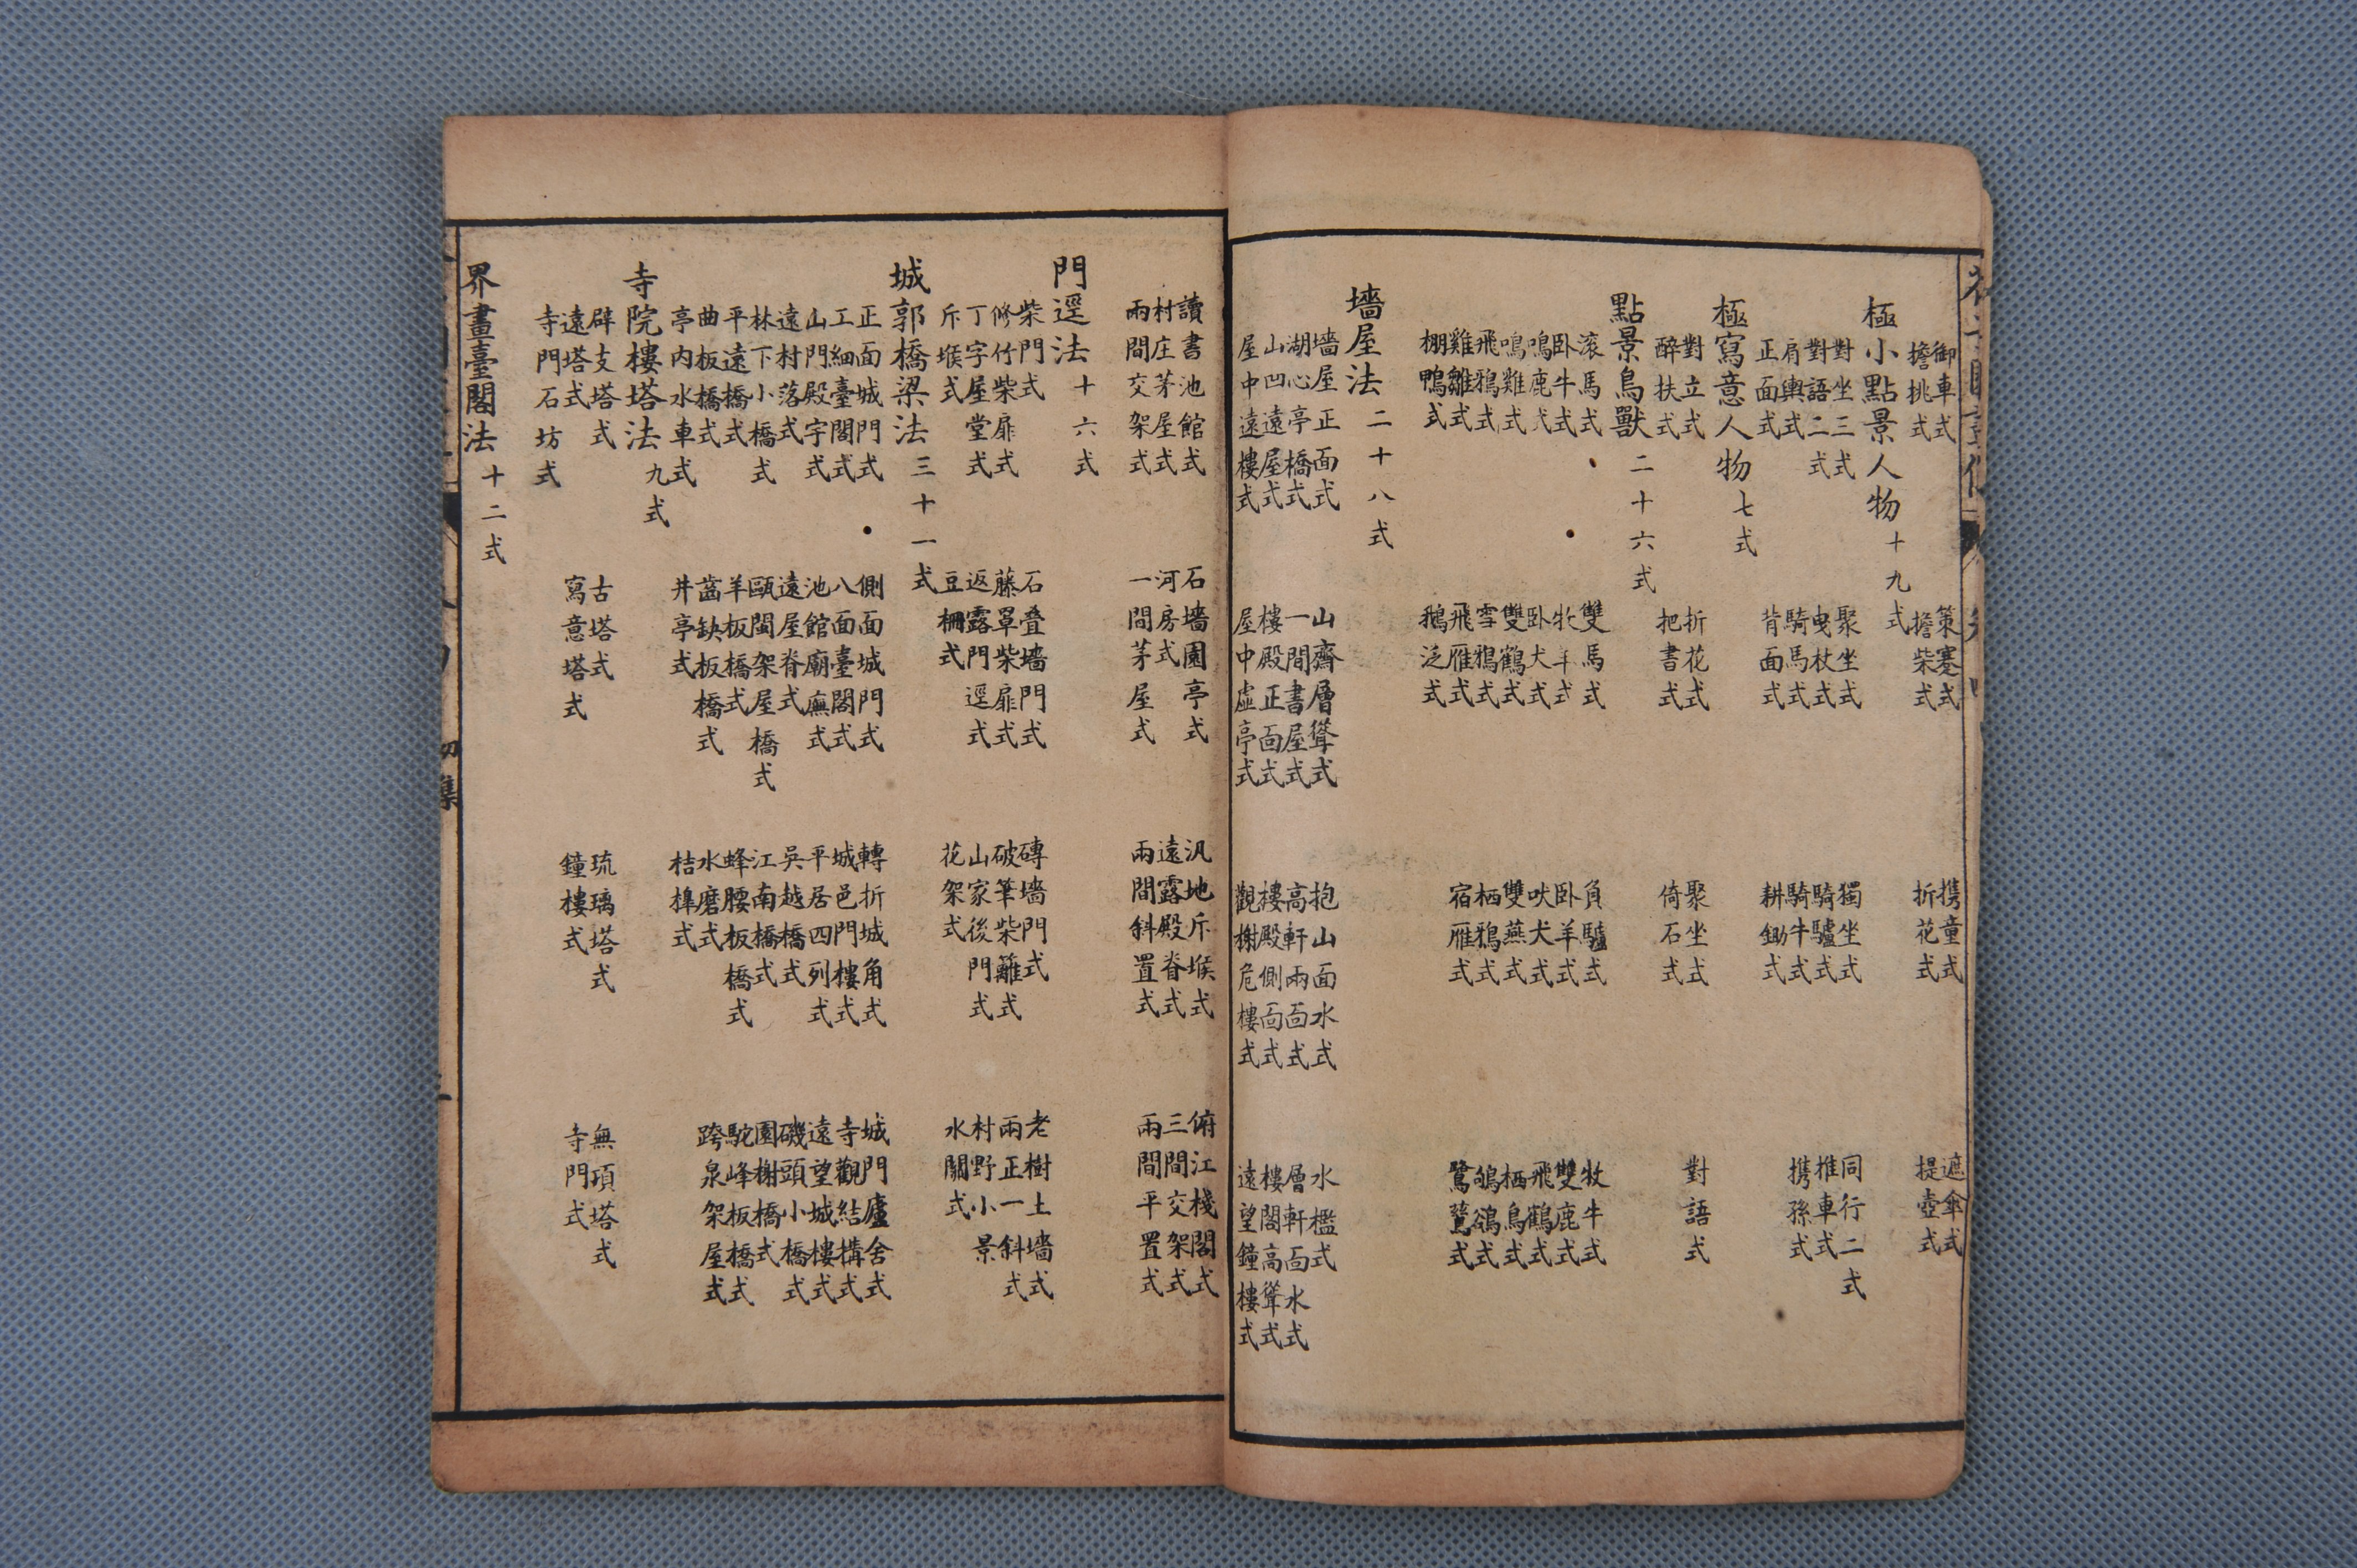 御車式 策蹇式 携童式 遮傘式
擔挑式 擔柴式 折花式 提壺式
極小點景人物十九式
對坐三式 聚坐式 獨坐式 同行二式
對語二式 曳杖式 騎驢式 推車式
肩輿式 騎馬式 騎牛式 携孫式
正面式 背面式 耕鋤式
極寫意人物七式
對立式 折花式 聚坐式 對語式
醉扶式 把書式 倚石式
點景鳥獸二十六式
滚馬式 雙馬式 負驢式 牧牛式
卧牛式 牧羊式 卧羊式 雙鹿式
鳴鹿式 卧犬式 吠犬式 飛鶴式
鳴雞式 雙鶴式 雙燕式 栖鳥式
飛鴉式 雪鴉式 栖鴉式 鴝鵒式
雞雛式 飛雁式 宿雁式 鷺鷥式
棚鴨式 鵝泛式
墻屋法二十八式
墻屋正面式 山齋層聳式 抱山面水式 水檻式
湖心亭橋式 一間書屋式 高軒兩面式 層軒面水式
山凹遠屋式 樓殿正面式 樓殿側面式 樓閣高聳式
屋中遠樓式 屋中虛亭式 觀榭危樓式 遠望鐘樓式
讀書池館式 石墻園亭式 汎地斥堠式 俯江棧閣式
村庄茅屋式 河房式 遠露殿脊式 三間交架式
兩間交架式 一間茅屋式 兩間斜置式 兩間平置式
門逕法十六式
柴門式 石叠墻門式 磚墻門式 老樹土墻式
修竹柴扉式 藤罩柴扉式 破筆柴籬式 兩正一斜式
丁字屋堂式 返露門逕式 山家後門式 村野小景
斥堠式 豆柵式 花架式 水關式
城郭橋梁法三十一式
正面城門式 側面城門式 轉折城角式 城門廬舍式
工細臺閣式 八面臺閣式 城邑門樓式 寺觀結搆式
山門殿宇式 池館廟廡式 平居四列式 遠望城樓式
遠村落式 遠屋脊式 吳越橋式 磯頭小橋式
林下小橋式 甌閩架屋橋式 江南橋式 園榭橋式
平遠橋式 羊板橋式 蜂腰板橋式 駝峰板橋式
曲板橋式 齒缺板橋式 水磨式 跨泉架屋式
亭內水車式 井亭式 桔槔式
寺院樓塔法九式
辟支塔式 古塔式 琉璃塔式 無項塔式
遠塔式 寫意塔式 鐘樓式 寺門式
寺門石坊式
界畫臺閣法十二式
初集